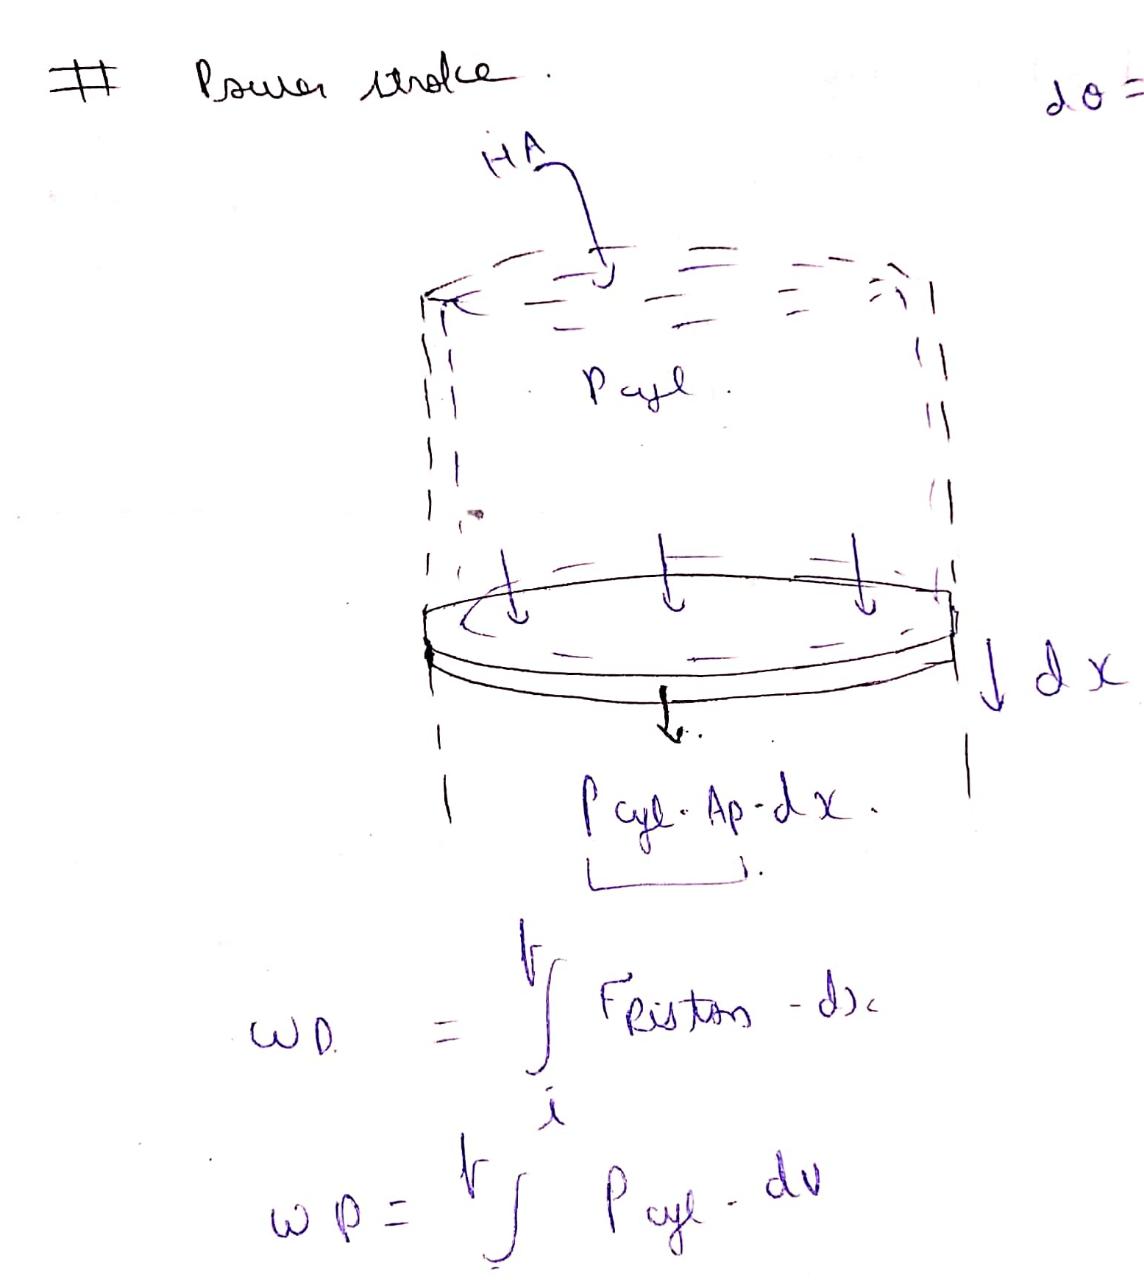 # Power stroke.
dθ =
HA
Pcyl.
↓ dx
Pcyl. Ap. dx.
WD. = ∫ᵢᶠ Fpiston - dx
WD = ∫ᶠ Pcyl. dv